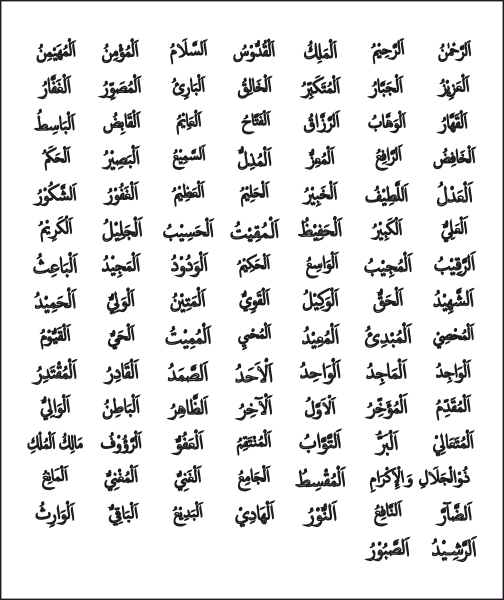 اَلرَّحْمٰنُ اَلرَّحِيْمُ اَلْمَلِكُ اَلْقُدُّوْسُ اَلسَّلَامُ اَلْمُؤْمِنُ اَلْمُهَيْمِنُ
اَلْعَزِيْزُ اَلْجَبَّارُ اَلْمُتَكَبِّرُ اَلْخَالِقُ اَلْبَارِئُ اَلْمُصَوِّرُ اَلْغَفَّارُ
اَلْقَهَّارُ اَلْوَهَّابُ اَلرَّزَّاقُ اَلْفَتَّاحُ اَلْعَلِيْمُ اَلْقَابِضُ اَلْبَاسِطُ
اَلْخَافِضُ اَلرَّافِعُ اَلْمُعِزُّ اَلْمُذِلُّ اَلسَّمِيْعُ اَلْبَصِيْرُ اَلْحَكَمُ
اَلْعَدْلُ اَللَّطِيْفُ اَلْخَبِيْرُ اَلْحَلِيْمُ اَلْعَظِيْمُ اَلْغَفُوْرُ اَلشَّكُوْرُ
اَلْعَلِيُّ اَلْكَبِيْرُ اَلْحَفِيْظُ اَلْمُقِيْتُ اَلْحَسِيْبُ اَلْجَلِيْلُ اَلْكَرِيْمُ
اَلرَّقِيْبُ اَلْمُجِيْبُ اَلْوَاسِعُ اَلْحَكِيْمُ اَلْوَدُوْدُ اَلْمَجِيْدُ اَلْبَاعِثُ
اَلشَّهِيْدُ اَلْحَقُّ اَلْوَكِيْلُ اَلْقَوِيُّ اَلْمَتِيْنُ اَلْوَلِيُّ اَلْحَمِيْدُ
اَلْمُحْصِيْ اَلْمُبْدِئُ اَلْمُعِيْدُ اَلْمُحْيِي اَلْمُمِيْتُ اَلْحَيُّ اَلْقَيُّوْمُ
اَلْوَاجِدُ اَلْمَاجِدُ اَلْوَاحِدُ اَلْاَحَدُ اَلصَّمَدُ اَلْقَادِرُ اَلْمُقْتَدِرُ
اَلْمُقَدِّمُ اَلْمُؤَخِّرُ اَلْاَوَّلُ اَلْآخِرُ اَلظَّاهِرُ اَلْبَاطِنُ اَلْوَالِيُ
اَلْمُتَعَالِيْ اَلْبَرُّ اَلتَّوَّابُ اَلْمُنْتَقِمُ اَلْعَفُوُّ اَلرَّؤُوْفُ مَالِكُ الْمُلْكِ
ذُوالْجَلَالِ وَالْاِكْرَامِ اَلْمُقْسِطُ اَلْجَامِعُ اَلْغَنِيُّ اَلْمُغْنِيُ اَلْمَانِعُ
اَلضَّآرُّ اَلنَّافِعُ اَلنُّوْرُ اَلْهَادِيْ اَلْبَدِيْعُ اَلْبَاقِيُ اَلْوَارِثُ
اَلرَّشِيْدُ اَلصَّبُوْرُ